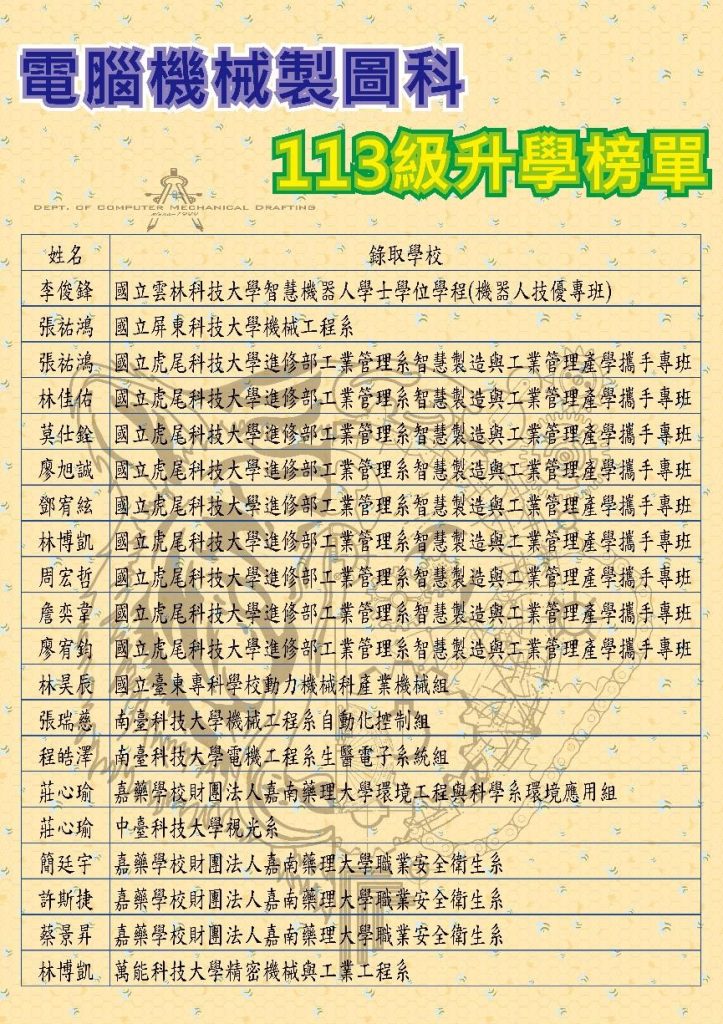 電腦機械製圖科
113級升學榜單
DEPT. OF COMPUTER MECHANICAL DRAFTING
since-1944
姓名 錄取學校
李俊鋒 國立雲林科技大學智慧機器人學士學位學程(機器人技優專班)
張祐鴻 國立屏東科技大學機械工程系
張祐鴻 國立虎尾科技大學進修部工業管理系智慧製造與工業管理產學攜手專班
林佳佑 國立虎尾科技大學進修部工業管理系智慧製造與工業管理產學攜手專班
莫仕銓 國立虎尾科技大學進修部工業管理系智慧製造與工業管理產學攜手專班
廖旭誠 國立虎尾科技大學進修部工業管理系智慧製造與工業管理產學攜手專班
鄧宥絃 國立虎尾科技大學進修部工業管理系智慧製造與工業管理產學攜手專班
林博凱 國立虎尾科技大學進修部工業管理系智慧製造與工業管理產學攜手專班
周宏哲 國立虎尾科技大學進修部工業管理系智慧製造與工業管理產學攜手專班
詹奕韋 國立虎尾科技大學進修部工業管理系智慧製造與工業管理產學攜手專班
廖宥鈞 國立虎尾科技大學進修部工業管理系智慧製造與工業管理產學攜手專班
林昊辰 國立臺東專科學校動力機械科產業機械組
張瑞慈 南臺科技大學機械工程系自動化控制組
程皓澤 南臺科技大學電機工程系生醫電子系統組
莊心瑜 嘉藥學校財團法人嘉南藥理大學環境工程與科學系環境應用組
莊心瑜 中臺科技大學視光系
簡廷宇 嘉藥學校財團法人嘉南藥理大學職業安全衛生系
許斯捷 嘉藥學校財團法人嘉南藥理大學職業安全衛生系
蔡景昇 嘉藥學校財團法人嘉南藥理大學職業安全衛生系
林博凱 萬能科技大學精密機械與工業工程系